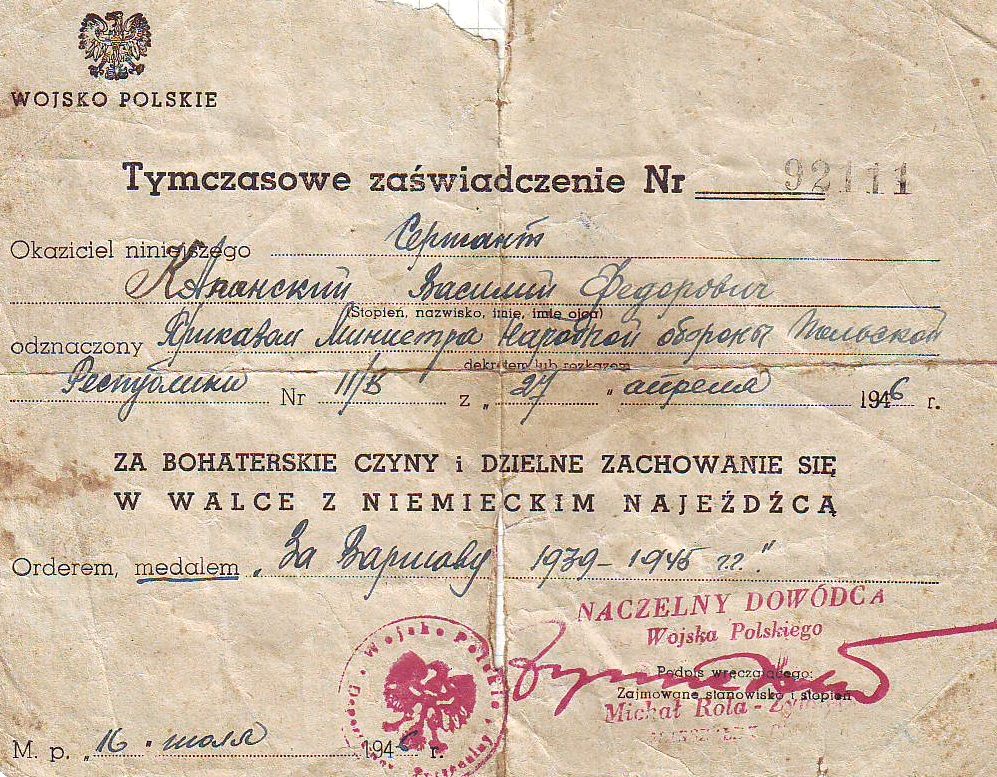 WOJSKO POLSKIE
Tymczasowe zaświadczenie Nr 92111
Okaziciel niniejszego Сержант
Василий Федорович
(Stopień, nazwisko, imię, imię ojca)
odznaczony Приказом Министра Народной обороны Польской
dekretem lub rozkazem
Республики Nr 11/В z „27" апреля 1946 r.
ZA BOHATERSKIE CZYNY i DZIELNE ZACHOWANIE SIĘ
W WALCE Z NIEMIECKIM NAJEŹDŹCĄ
Orderem, medalem „За Варшаву 1939–1945 г.г."
NACZELNY DOWÓDCA
Wojska Polskiego
Podpis wręczającego:
Zajmowane stanowisko i stopień
Michał Rola-
Wojsko Polskie
M. p. „16. июля 1946 r.